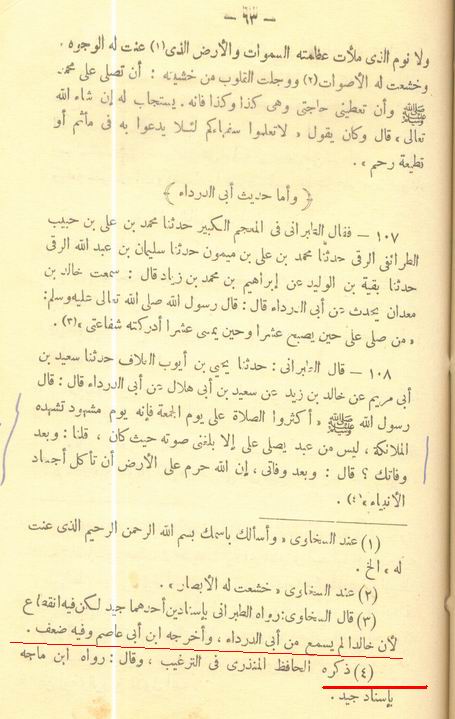 — ٦٣ —
ولا نوم الذى ملأت عظمته السموات والأرض الذى (١) عنت له الوجوه .
وخشعت له الأصوات (٢) ووجلت القلوب من خشيته : أن تصلى على محمد
ﷺ وأن تعطينى حاجتى وهى كذا وكذا فانه . يستجاب له إن شاء الله
تعالى ، قال وكان يقول « لا تعلموا سفهاءكم لئلا يدعوا به فى مأثم أو
قطيعة رحم » .
﴿ وأما حديث أبى الدرداء ﴾
١٠٧ — فقال الطبرانى فى المعجم الكبير حدثنا محمد بن على بن حبيب
الطرائفى الرقى حدثنا محمد بن على بن ميمون حدثنا سليمان بن عبد الله الرقى
حدثنا بقية بن الوليد عن إبراهيم بن محمد بن زياد قال : سمعت خالد بن
معدان يحدث عن أبى الدرداء قال : قال رسول الله صلى الله تعالى عليه وسلم :
« من صلى على حين يصبح عشرا وحين يمسى عشرا أدركته شفاعتى » (٣) .
١٠٨ — قال الطبرانى : حدثنا يحيى بن أيوب العلاف حدثنا سعيد بن
أبى مريم عن خالد بن زيد عن سعيد بن أبى هلال عن أبى الدرداء قال : قال
رسول الله ﷺ « أكثروا الصلاة على يوم الجمعة فإنه يوم مشهود تشهده
الملائكة ، ليس من عبد يصلى على إلا بلغنى صوته حيث كان ، قلنا : وبعد
وفاتك ؟ قال : وبعد وفاتى ، إن الله حرم على الأرض أن تأكل أجساد
الأنبياء » (٤) .
(١) عند السخاوى « وأسألك باسمك بسم الله الرحمن الرحيم الذى عنت
له » الخ .
(٢) عند السخاوى « خشعت له الأبصار » .
(٣) قال السخاوى : رواه الطبرانى بإسنادين أحدهما جيد لكن فيه انقطاع
لأن خالدا لم يسمع من أبى الدرداء ، وأخرجه ابن أبى عاصم وفيه ضعف .
(٤) ذكره الحافظ المنذرى فى الترغيب ، وقال : رواه ابن ماجه
بإسناد جيد .